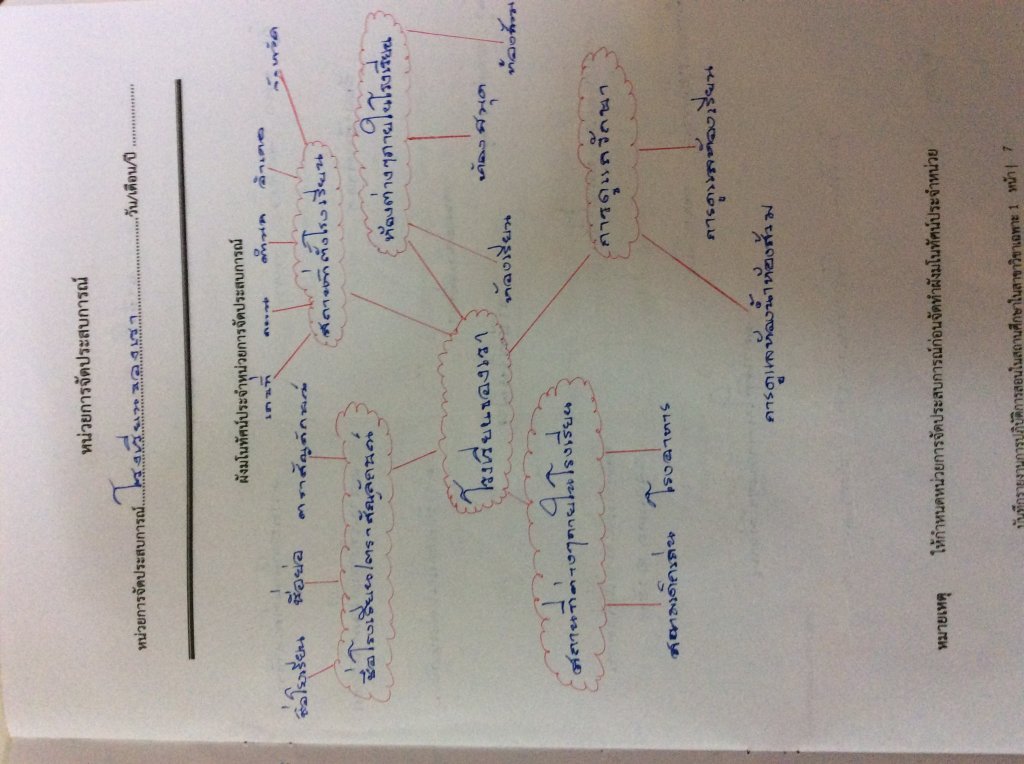 หน่วยการจัดประสบการณ์
หน่วยการจัดประสบการณ์ โรงเรียนของเรา วัน/เดือน/ปี
ผังมโนทัศน์ประจำหน่วยการจัดประสบการณ์
ชื่อโรงเรียน ชื่อย่อ ตราสัญลักษณ์
เลขที่ ถนน ตำบล อำเภอ จังหวัด
ชื่อโรงเรียน/ตราสัญลักษณ์
สถานที่ตั้งโรงเรียน
ห้องต่างๆภายในโรงเรียน
โรงเรียนของเรา
ห้องเรียน ห้องสมุด ห้องส้วม
สถานที่ต่างๆภายในโรงเรียน
การดูแลรักษา
สนามเด็กเล่น โรงอาหาร
การดูแลห้องเรียน
การดูแลห้องน้ำห้องส้วม
หมายเหตุ ให้กำหนดหน่วยการจัดประสบการณ์ก่อนจัดทำผังมโนทัศน์ประจำหน่วย
บันทึกรายงานการปฏิบัติการสอนในสถานศึกษาในสาขาวิชาเฉพาะ 1 หน้า | 7